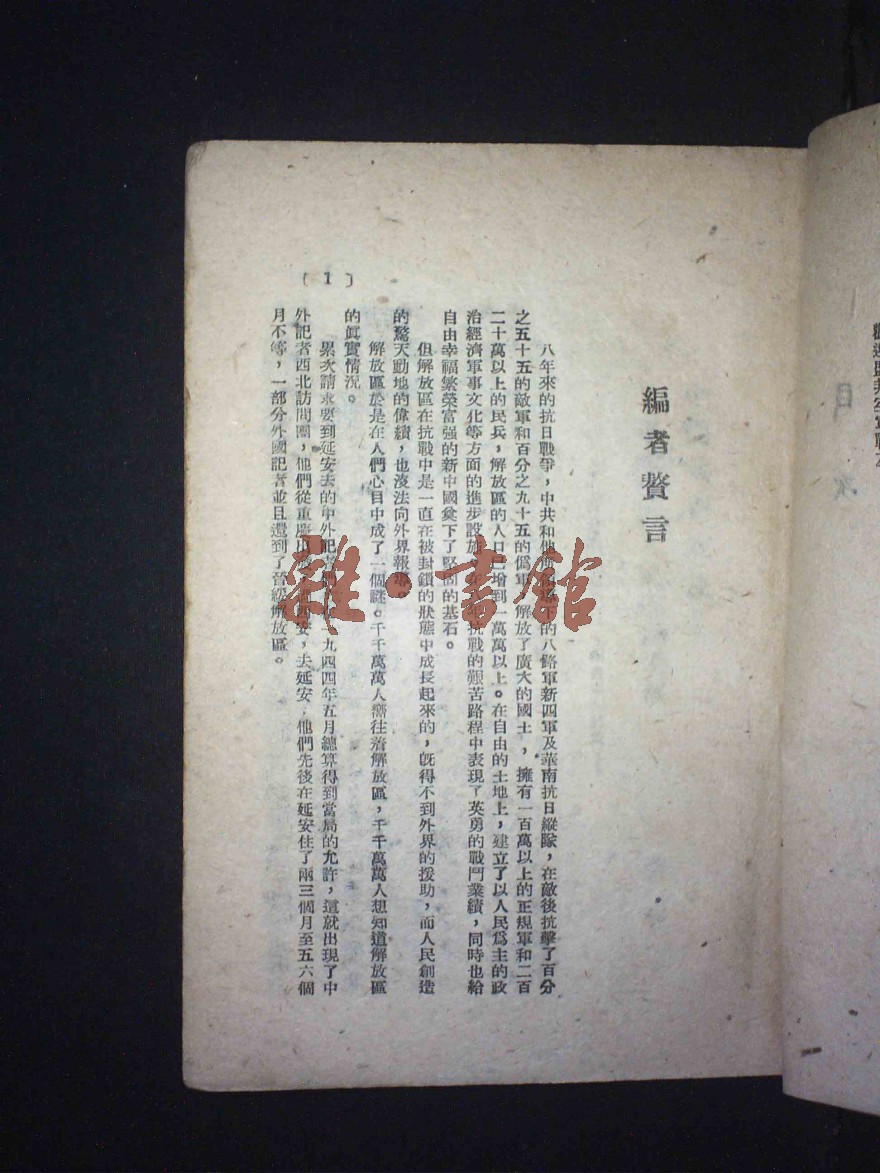 編者贅言
八年來的抗日戰爭，中共和他所領導下的八路軍新四軍及華南抗日縱隊，在敵後抗擊了百分
之五十五的敵軍和百分之九十五的僞軍，解放了廣大的國土，擁有一百萬以上的正規軍和二百
二十萬以上的民兵，解放區的人口已增到一萬萬以上。在自由的土地上，建立了以人民爲主的政
治經濟軍事文化等方面的進步設施，抗戰的艱苦路程中表現了英勇的戰鬥業績，同時也給
自由幸福繁榮富强的新中國奠下了堅固的基石。
但解放區在抗戰中是一直在被封鎖的狀態中成長起來的，旣得不到外界的援助，而人民創造
的驚天動地的偉績，也沒法向外界報導。
解放區於是在人們心目中成了一個謎。千千萬萬人嚮往着解放區，千千萬萬人想知道解放區
的眞實情況。
累次請求要到延安去的中外記者，九四四年五月總算得到當局的允許，這就出現了中
外記者西北訪問團，他們從重慶出西安，去延安，他們先後在延安住了兩三個月至五六個
月不等，一部分外國記者並且還到了晉綏解放區。
〔1〕
雜·書館
目次